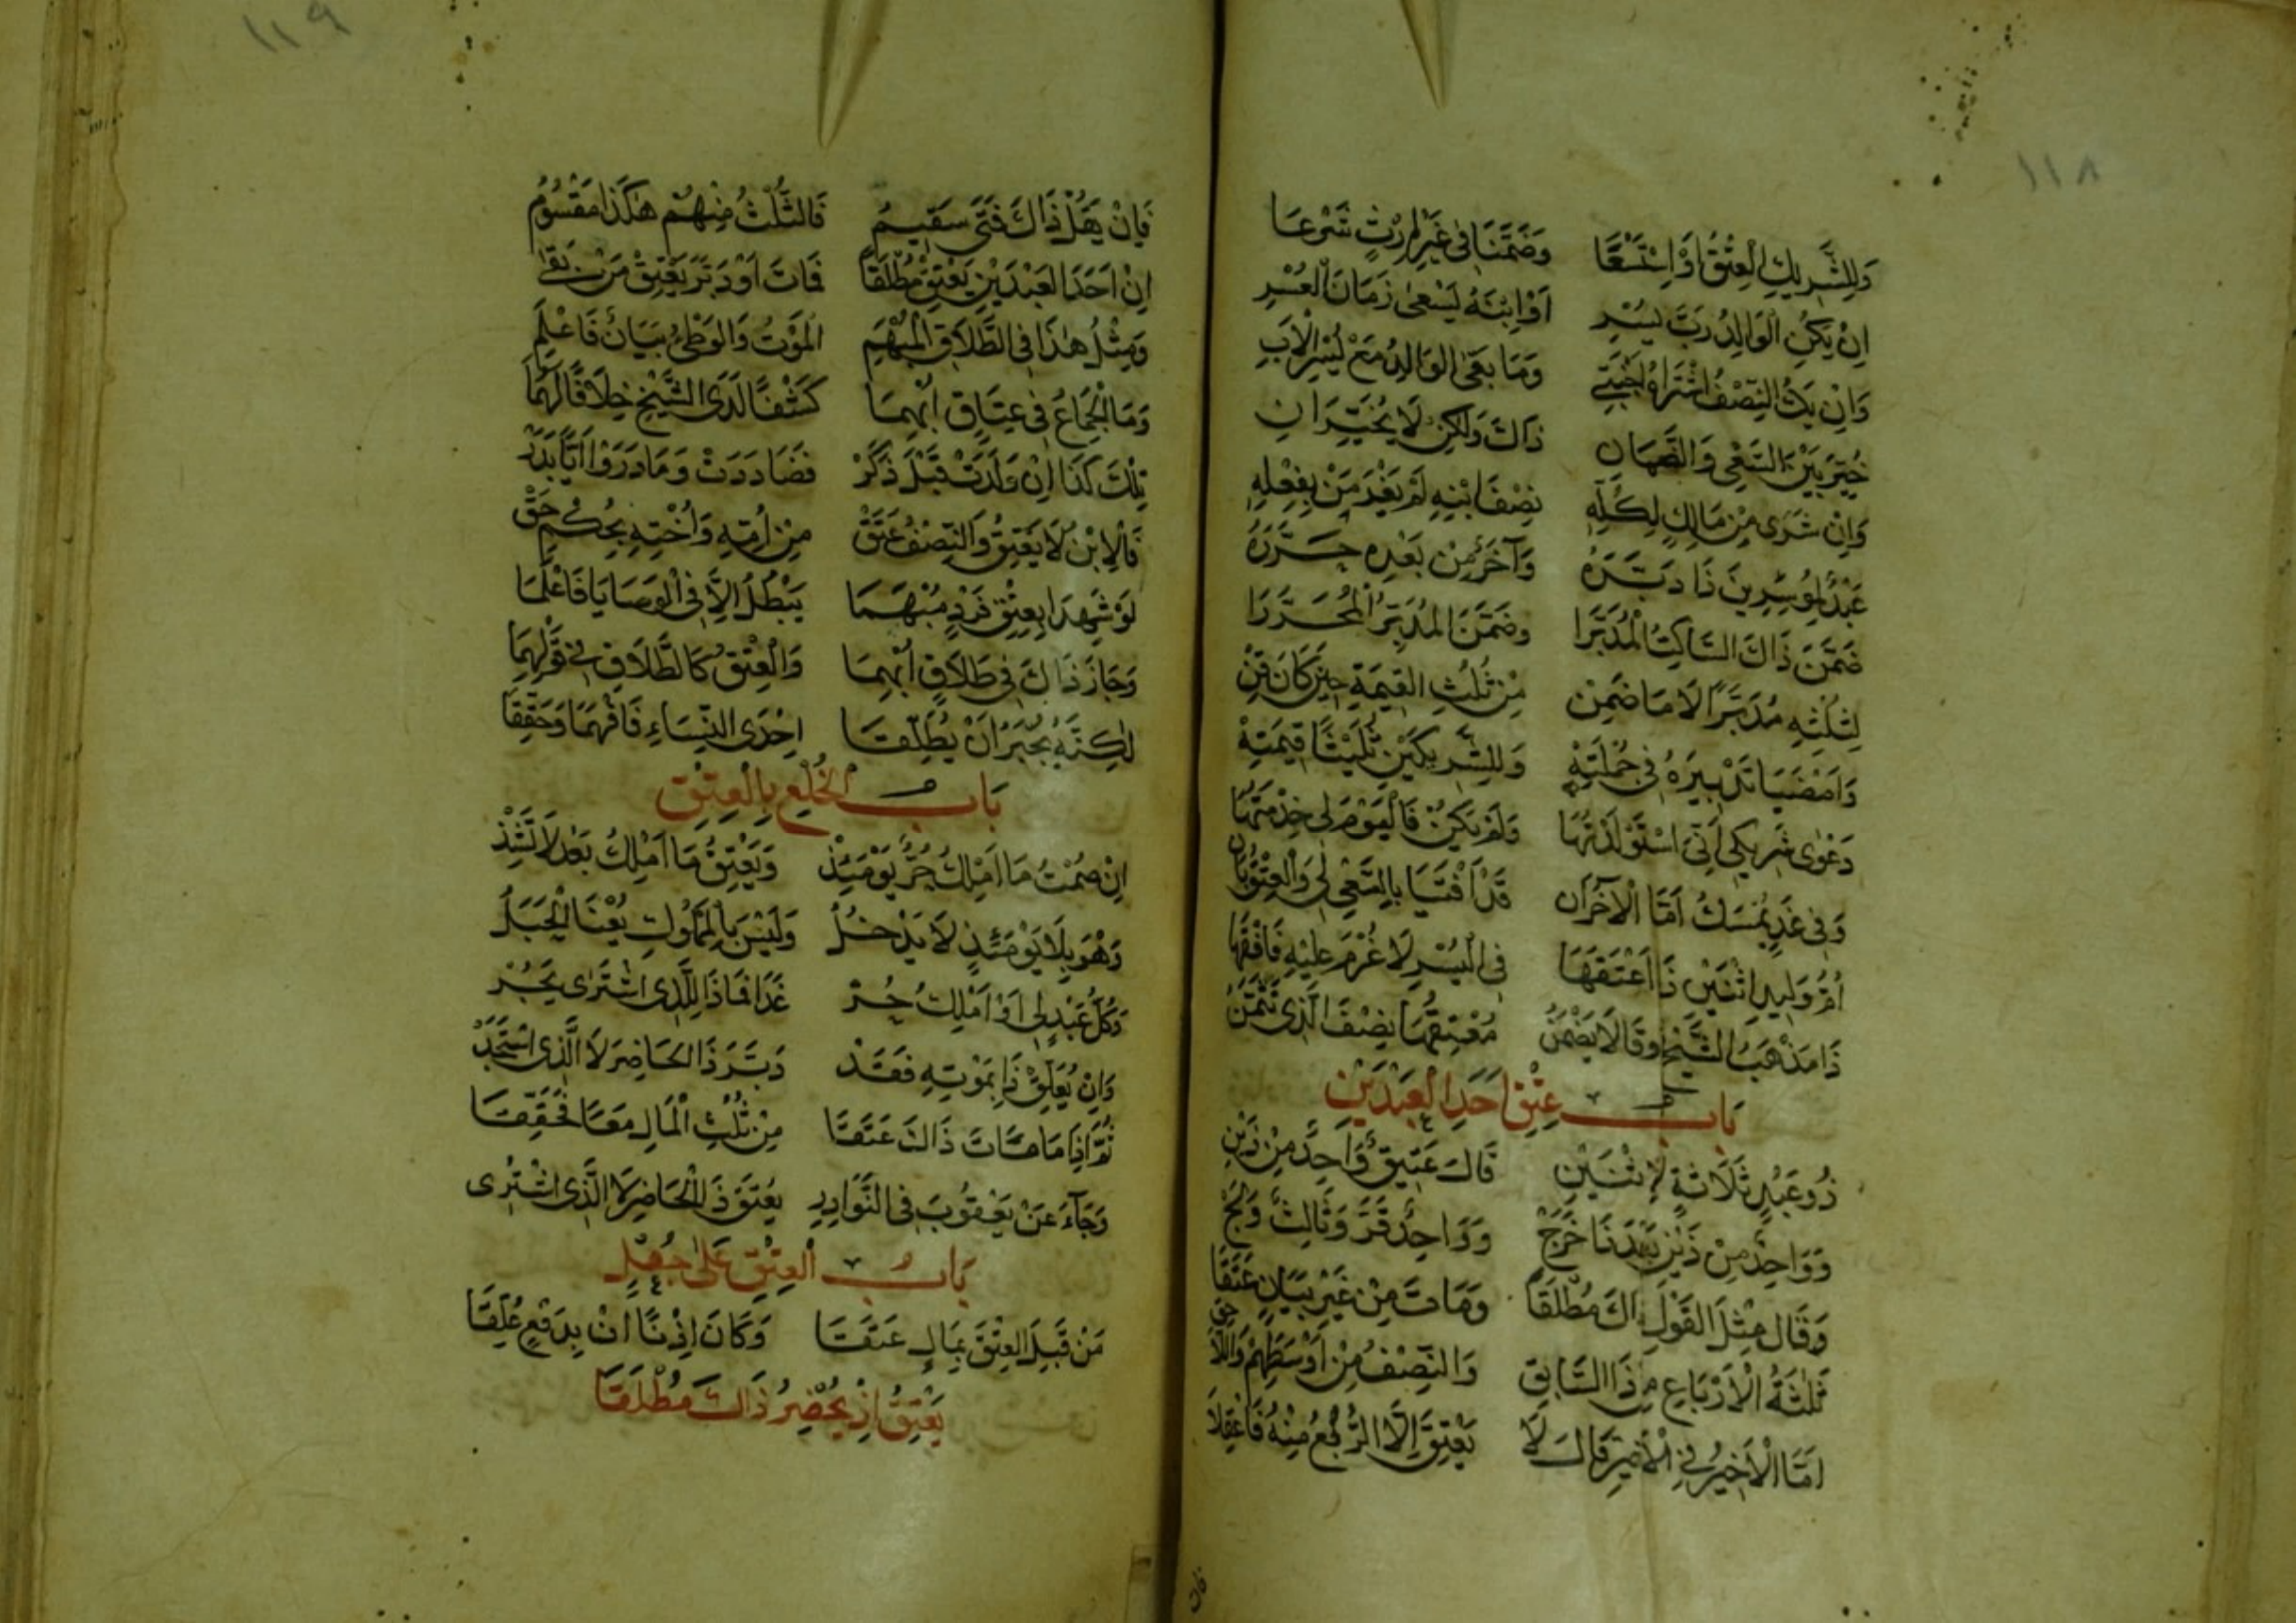 ١١٨
وَلِلشَّرِيكِ الْعِتْقُ اَوْ اِسْتَسْعَا وَضَمَّنَا فِي غَيْرِ اِرْثٍ شَرْعَا
اِنْ يَكُنِ الْوَالِدُ رَبَّ يُسْرِ اَوْ اِبْنَهُ يَسْعٰى زَمَانَ الْعُسْرِ
وَاِنْ يَكُ النِّصْفُ اشْتَرَاهُ اَجْنَبِي وَمَا بَقِيَ الْوَالِدُ مَعْ يُسْرِ الْاَبِ
خُيِّرَ بَيْنَ السَّعْيِ وَالضَّمَانِ ذَاكَ وَلٰكِنْ لَا يُخَيَّرَانِ
وَاِنْ شَرَى مِنْ مَالِكٍ لِكُلِّهِ نِصْفَ ابْنِهِ لَمْ يَغْرَمَنْ بِفِعْلِهِ
عَبْدٌ لِمُوسِرِينَ ذَا دَبَّرَهُ وَآخَرٌ مِنْ بَعْدِهِ حَرَّرَهُ
ضَمَّنَ ذَاكَ السَّاكِتُ الْمُدَبِّرَا وَضَمَّنَ الْمُدَبِّرُ الْمُحَرِّرَا
لِثُلْثِهِ مُدَبَّرًا لَا مَا ضَمِنْ مِنْ ثُلُثِ الْقِيمَةِ حِينَ كَانَ قِنْ
وَاَمْضَيَا تَدْبِيرَهُ فِي جُمْلَتِهْ وَلِلشَّرِيكَيْنِ ثُلُثَا قِيمَتِهْ
دَعْوٰى شَرِيكِي اَنِّيَ اسْتَوْلَدْتُهَا وَلَمْ يَكُنْ فَالْيَوْمَ لِي خِدْمَتُهَا
وَفِي غَدٍ يُمْسَكُ اَمَّا الْآخَرَانِ قَدْ اَفْتَيَا بِالسَّعْيِ لِي وَالْعِتْقُ بَانْ
اُمُّ وَلِيدِ اثْنَيْنِ ذَا اَعْتَقَهَا فِي الْيُسْرِ لَا غُرْمَ عَلَيْهِ فَافْقَهَا
ذَا مَذْهَبُ الشَّيْخِ وَقَالَا يَضْمَنُ مُعْتِقُهَا نِصْفَ الَّذِي تُثَمَّنُ
بَابُ عِتْقِ اَحَدِ الْعَبْدَيْنِ
ذُو عَبْدٍ ثَلَاثَةٍ لِاِثْنَيْنِ قَالَ عَتِيقٌ وَاحِدٌ مِنْ ذَيْنِ
وَوَاحِدٌ مِنْ ذَيْنِ خَرَجْ وَوَاحِدٌ قَرَّ وَثَالِثٌ وَلَجْ
وَقَالَ مِثْلَ الْقَوْلِ ذَاكَ مُطْلَقَا وَمَاتَ مِنْ غَيْرِ بَيَانٍ عَتَقَا
ثَلٰثَةُ الْاَرْبَاعِ مِنْ ذَا السَّابِقِ وَالنِّصْفُ مِنْ اَوْسَطِهِمْ وَاللَّاحِقِ
اَمَّا الْاَخِيرُ فِي الْاَخِيرِ قَالَ لَا يَعْتِقُ اِلَّا الرُّبْعُ مِنْهُ فَاعْقِلَا
فان
١١٩
فَاِنْ يَقُلْ ذَاكَ فَتًى سَقِيمُ فَالثُّلُثُ مِنْهُمْ هٰكَذَا مَقْسُومُ
اِنْ اَحَدَ الْعَبْدَيْنِ يَعْتِقْ مُطْلَقَا فَاتَ اَوْ دَبَّرَ يَعْتِقْ مَنْ بَقٰى
وَمِثْلُ هٰذَا فِي الطَّلَاقِ الْمُبْهَمِ اَلْمَوْتُ وَالْوَطْئُ بَيَانٌ فَاعْلَمِ
وَمَا الْجِمَاعُ فِي عِتَاقٍ اُبْهِمَا كَشْفًا لَدَى الشَّيْخِ خِلَافًا لَهُمَا
تِلْكَ كَذَا اِنْ وَلَدَتْ قَبْلُ ذَكَرْ فَصَادَدَتْ وَمَا دَرَوْا اَيًّا بَدَرْ
فَالْاِبْنُ لَا يَعْتِقُ وَالنِّصْفُ عَتَقْ مِنْ اُمِّهِ وَاُخْتِهِ بِحُكْمِ حَقْ
لَوْ شَهِدَا بِعِتْقِ فَرْدٍ مُبْهَمَا يَبْطُلُ اِلَّا فِي الْوَصَايَا فَاعْلَمَا
وَجَازَ ذَاكَ فِي طَلَاقٍ اُبْهِمَا وَالْعِتْقُ كَالطَّلَاقِ فِي قَوْلِهِمَا
لٰكِنَّهُ يُجْبَرُ اَنْ يُطَلِّقَا اِحْدَى النِّسَاءِ فَافْهَمَا وَحَقِّقَا
بَابُ الْخُلْعِ بِالْعِتْقِ
اِنْ صُمْتُ مَا اَمْلِكُ حُرٌّ يَوْمَئِذْ وَيَعْتِقُ مَا اَمْلِكُ بَعْدُ لَا تَشِذْ
وَهْوَ بِلَا يَوْمَئِذٍ لَا يَدْخُلُ وَلَيْسَ بِالْمَمْلُوكِ يُعْنَا الْحَبَلُ
وَكُلُّ عَبْدٍ لِي اَوْ اَمْلِكُ حُرْ غَدًا فَمَا ذَا لِلَّذِي اشْتَرٰى يَجُرْ
وَاِنْ يُعَلِّقْ ذَا بِمَوْتِهِ فَقَدْ دَبَّرَ ذَا الْحَاضِرَ لَا الَّذِي اسْتَجَدْ
ثُمَّ اِذَا مَا مَاتَ ذَاكَ عَتَقَا مِنْ ثُلُثِ الْمَالِ مَعًا فَحَقِّقَا
وَجَآءَ عَنْ يَعْقُوبَ فِي النَّوَادِرِ يُعْتَقُ ذَا الْحَاضِرُ لَا الَّذِي اشْتُرِى
بَابُ الْعِتْقِ عَلٰى جُعْلٍ
مَنْ قَبِلَ الْعِتْقَ بِمَالٍ عَتَقَا وَكَانَ اِذْنًا اِنْ بِدَفْعٍ عُلِّقَا
يَعْتِقُ اِذْ يُحْضِرُ ذَاكَ مُطْلَقَا